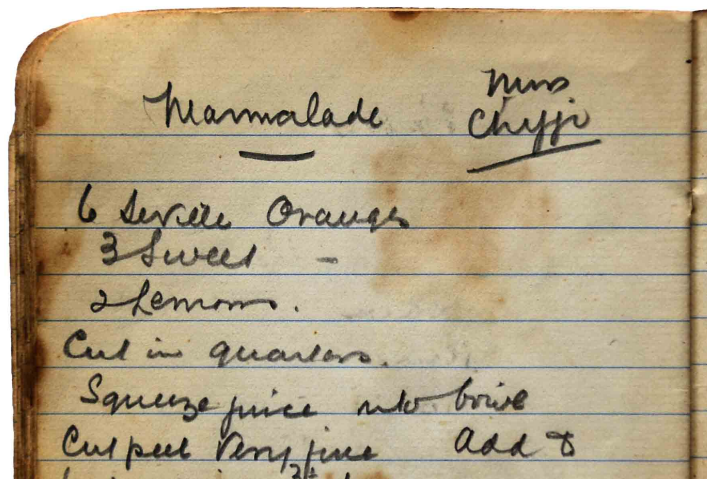 Marmalade Mrs
6 Seville Oranges
3 Sweet -
2 Lemons.
Cut in quarters.
Squeeze juice into bowl
Cut peel very fine add &